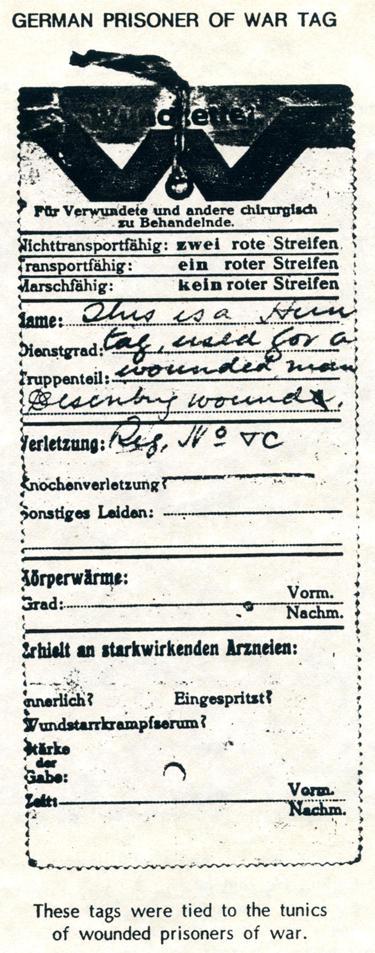 GERMAN PRISONER OF WAR TAG
Wundzettel
W
Für Verwundete und andere chirurgisch
zu Behandelnde.
Nichttransportfähig: zwei rote Streifen
Transportfähig: ein roter Streifen
Marschfähig: kein roter Streifen
Name: This is a Hun
Dienstgrad: tag, used for a
Truppenteil: wounded man
wounds.
Verletzung: Reg. No &c
Knochenverletzung?
Sonstiges Leiden:
Körperwärme:
Vorm.
Grad:
Nachm.
Erhielt an starkwirkenden Arzneien:
nnerlich? Eingespritzt?
Wundstarrkrampfserum?
Stärke
der
Gabe:
Vorm.
Zeit:
Nachm.
These tags were tied to the tunics
of wounded prisoners of war.